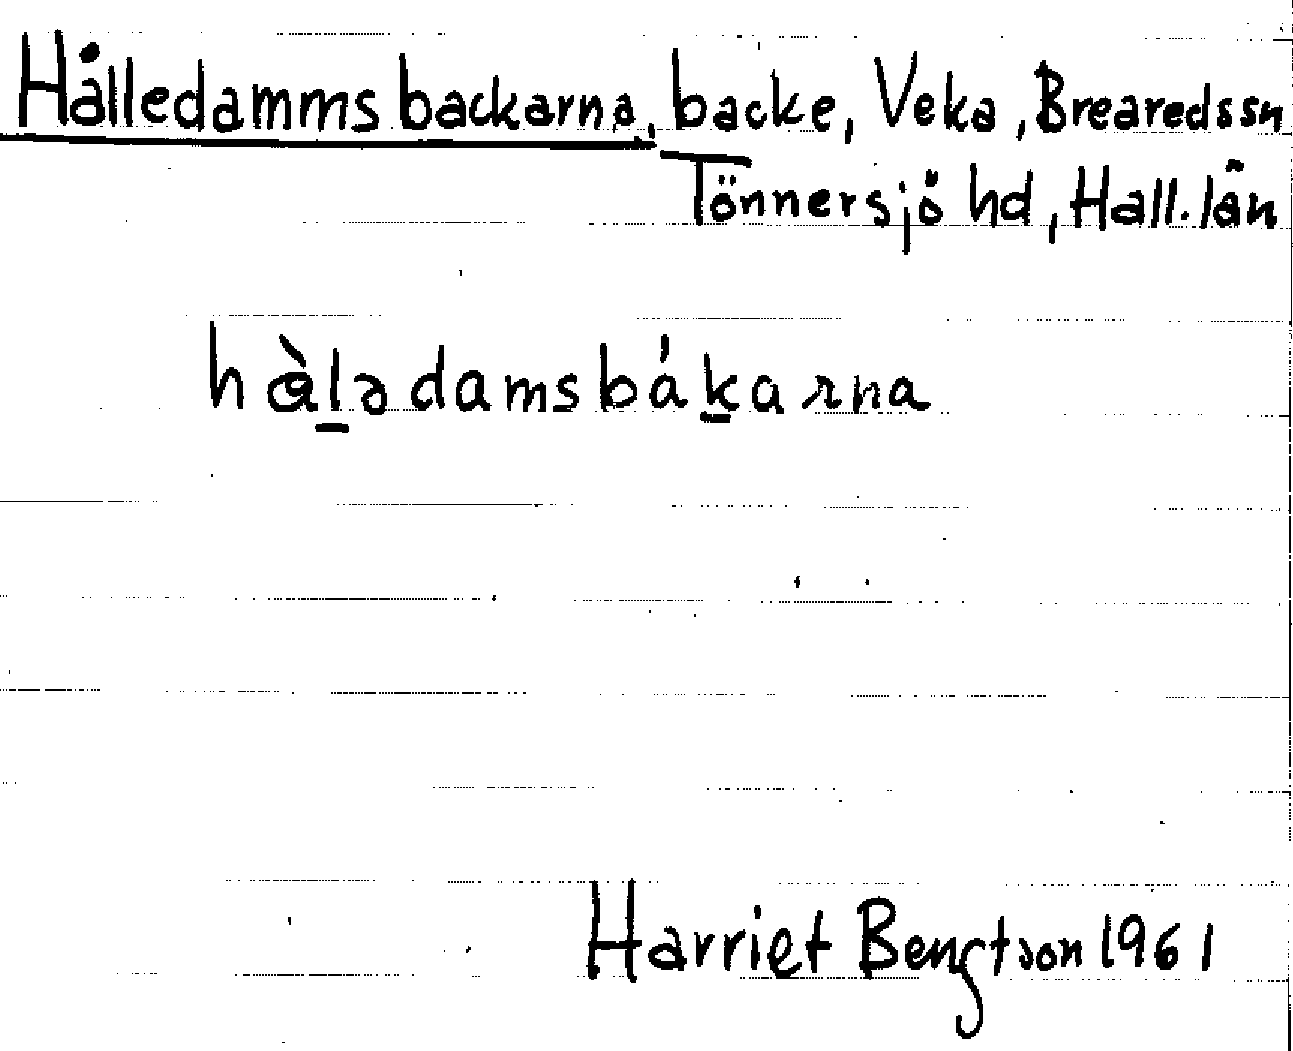 Hålledammsbackarna, backe, Veka, Breareds sn
Tönnersjö hd, Hall. län
hàl̲ədamsbák̲arna
Harriet Bengtson 1961